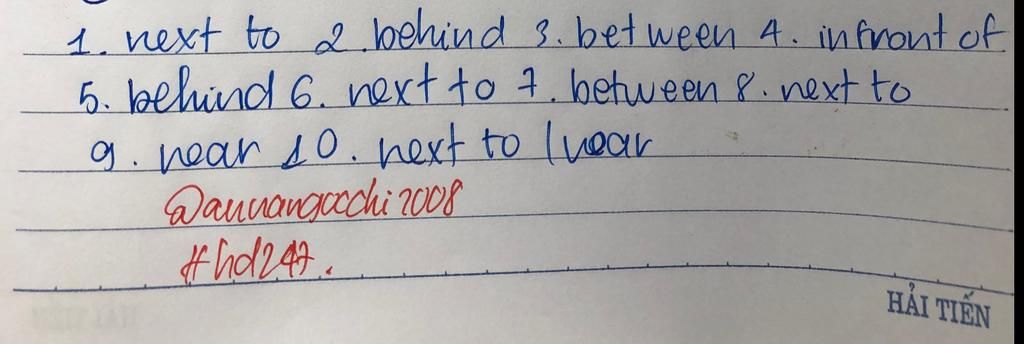 1. next to 2. behind 3. between 4. infront of
5. behind 6. next to 7. between 8. next to
9. near 10. next to / near
#hd247.
HẢI TIẾN